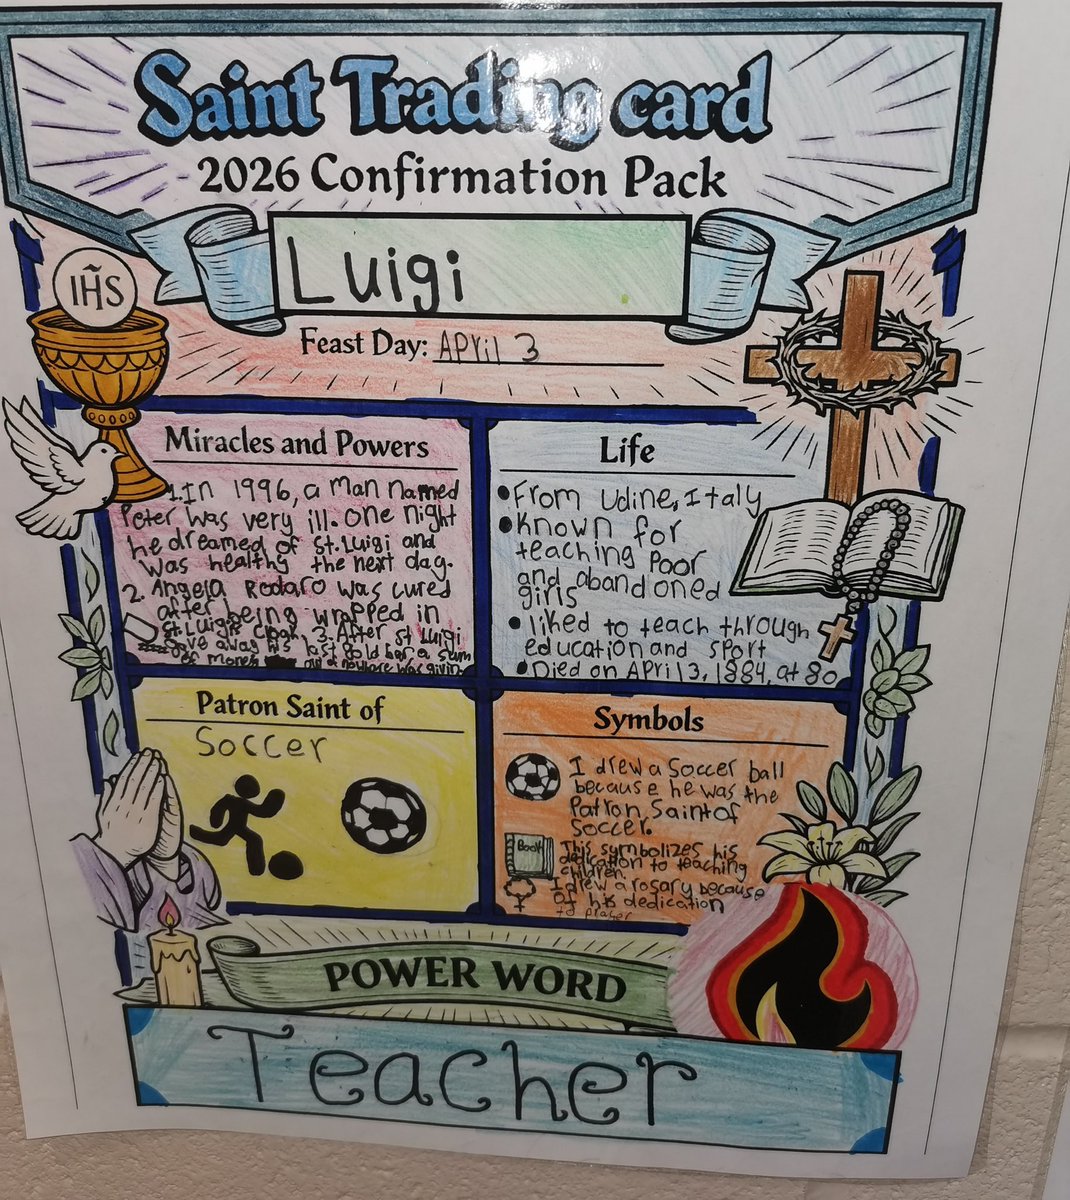 Saint Trading card
2026 Confirmation Pack
Luigi
Feast Day: April 3
IHS
Miracles and Powers
1. In 1996, a man named
Peter was very ill. one night
he dreamed of st. Luigi and
was healthy the next day.
2. Angela Rodaro was cured
after being wrapped in
St. Luigi's Cloak. 3. After st Luigi
gave away his last gold for a sum
of money out of nowhere was givin
Life
• From Udine, Italy
• Known for
teaching Poor
and abandoned
girls
• liked to teach through
education and sport
• Died on April 3, 1884, at 80
Patron Saint of
Soccer
Symbols
I drew a Soccer ball
because he was the
Patron Saint of
Soccer.
Book
This symbolizes his
dedication to teaching
children.
I drew a rosary because
of his dedication
to prayer
POWER WORD
Teacher